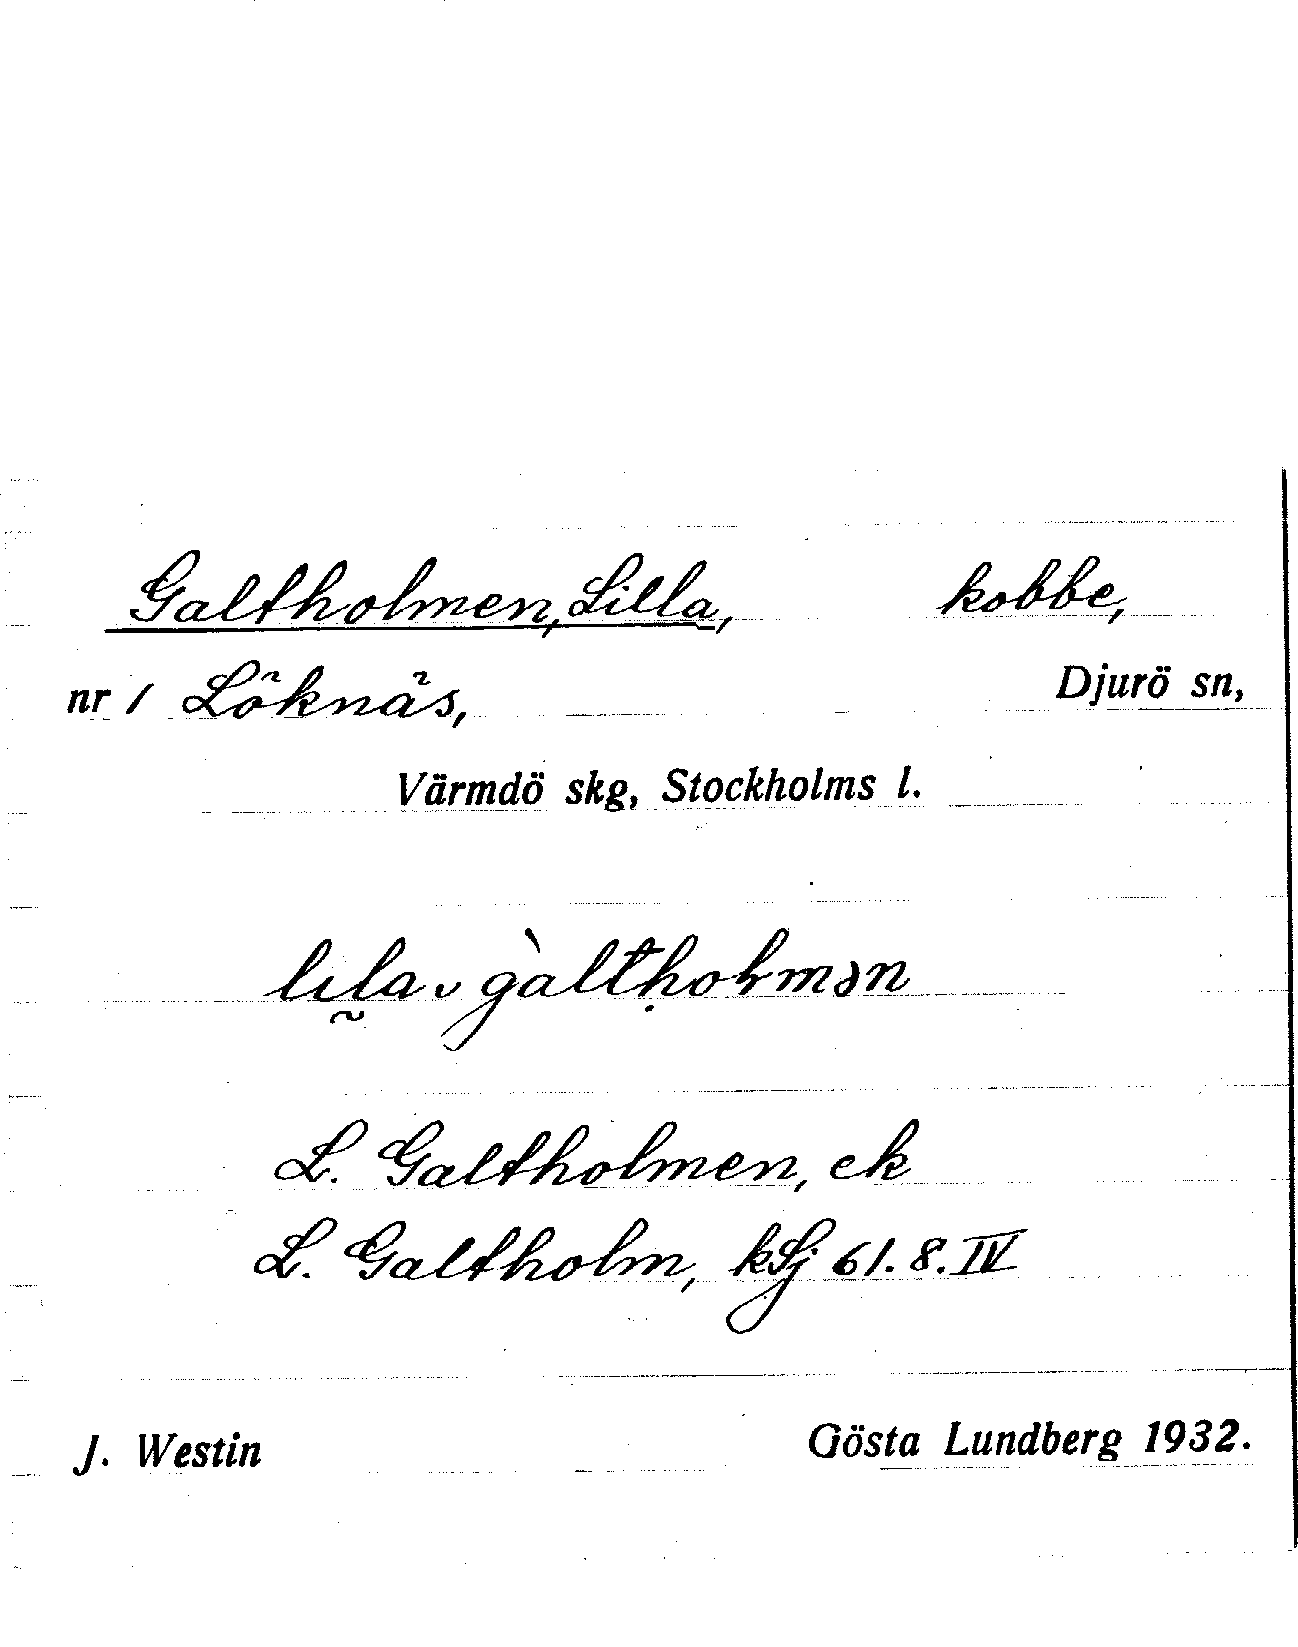 Galtholmen, Lilla, kobbe,
nr 1 Löknäs, Djurö sn,
Värmdö skg, Stockholms l.
L. Galtholmen, ek
L. Galtholm, kSj 61. 8. IV
J. Westin Gösta Lundberg 1932.